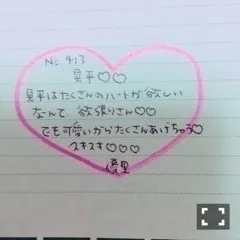 No 413
晃平♡♡
晃平はたくさんのハートが欲しい
なんて、欲張りさん♡♡
でも可愛いからたくさんあげちゃう♡
スキスキ♡♡♡
優里